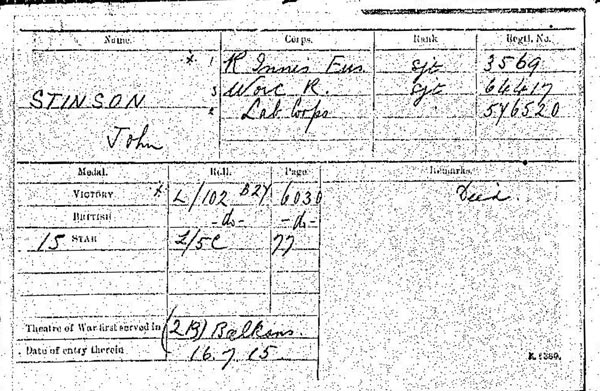 Name. Corps. Rank Regtl. No.
x 1 R Innis Fus. Sjt 3569
STINSON 3 Worc R. Sjt 64417
2 Lab Corps " 546520
John
Medal. Roll. Page. Remarks.
VICTORY x L/102 B27 6030 Died
BRITISH -do- -do-
15 STAR L/5C 77
Theatre of War first served in (2B) Balkans.
Date of entry therein 16.7.15.
K. 1380.